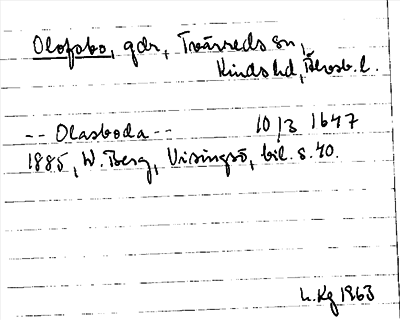 Olofsbo, gdr, Tvärreds sn,
Kinds hd, Älvsb. l.
-- Olasboda -- 10/3 1647
1885, W. Berg, Visingsö, bil. s. 40.
L. Kg 1963